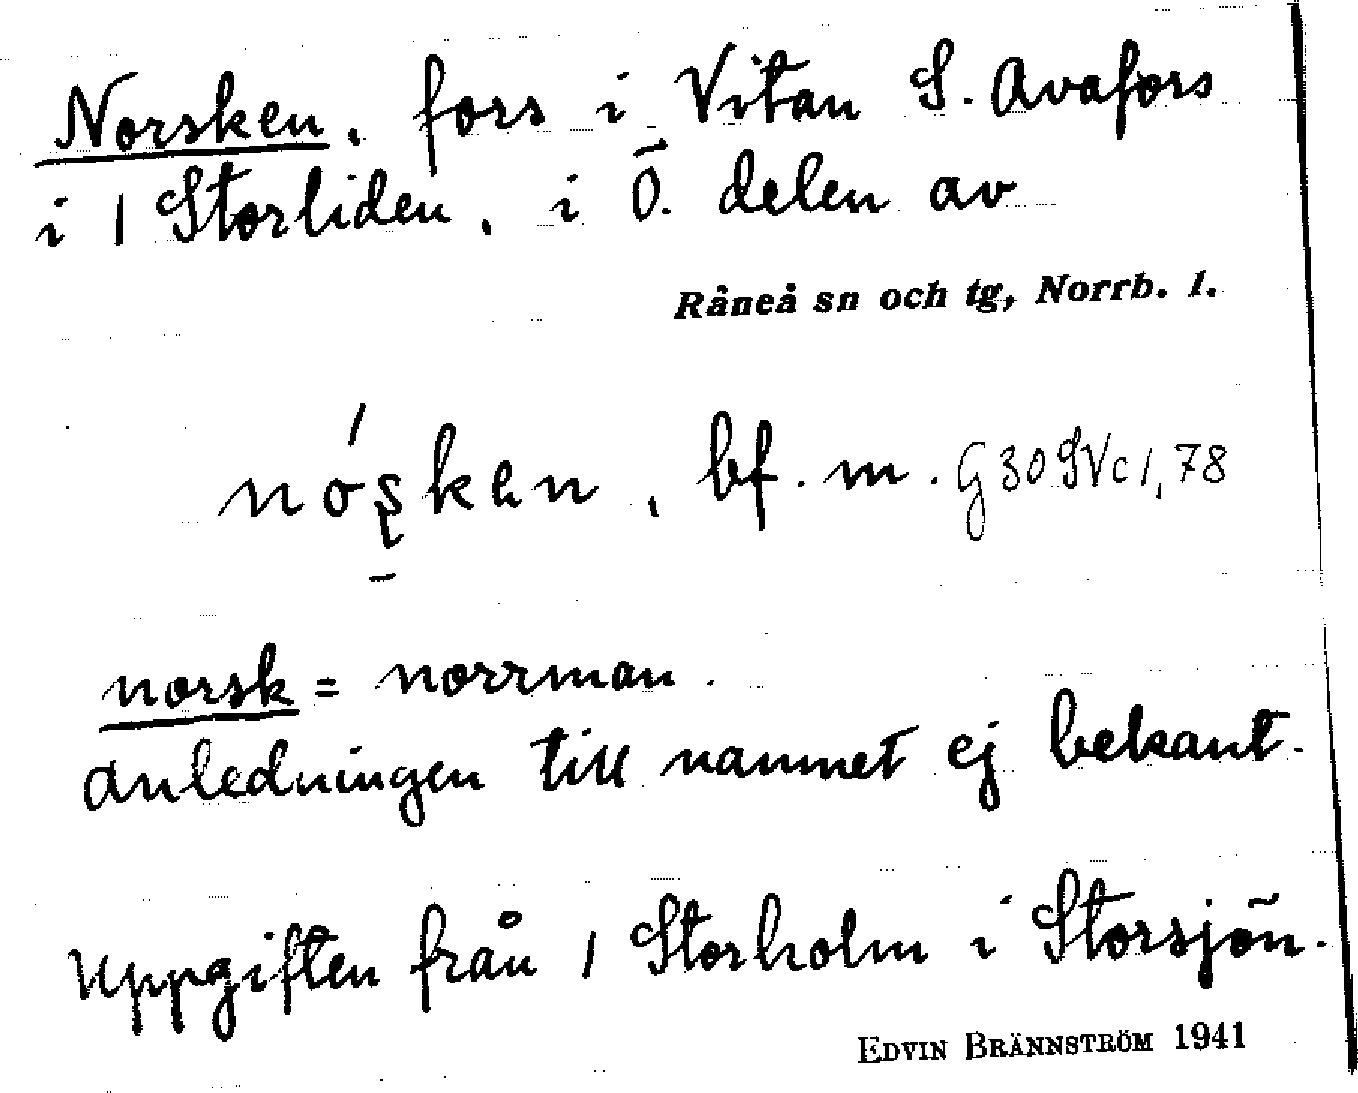 Norsken, fors i Vitån S. Avafors
i 1 Storliden, i Ö. delen av
Råneå sn och tg, Norrb. l.
nó̱ʂken, bf. m. G30SVc1,78
norsk = norrman.
Anledningen till namnet ej bekant.
Uppgiften från 1 Storholm i Storsjön.
EDVIN BRÄNNSTRÖM 1941